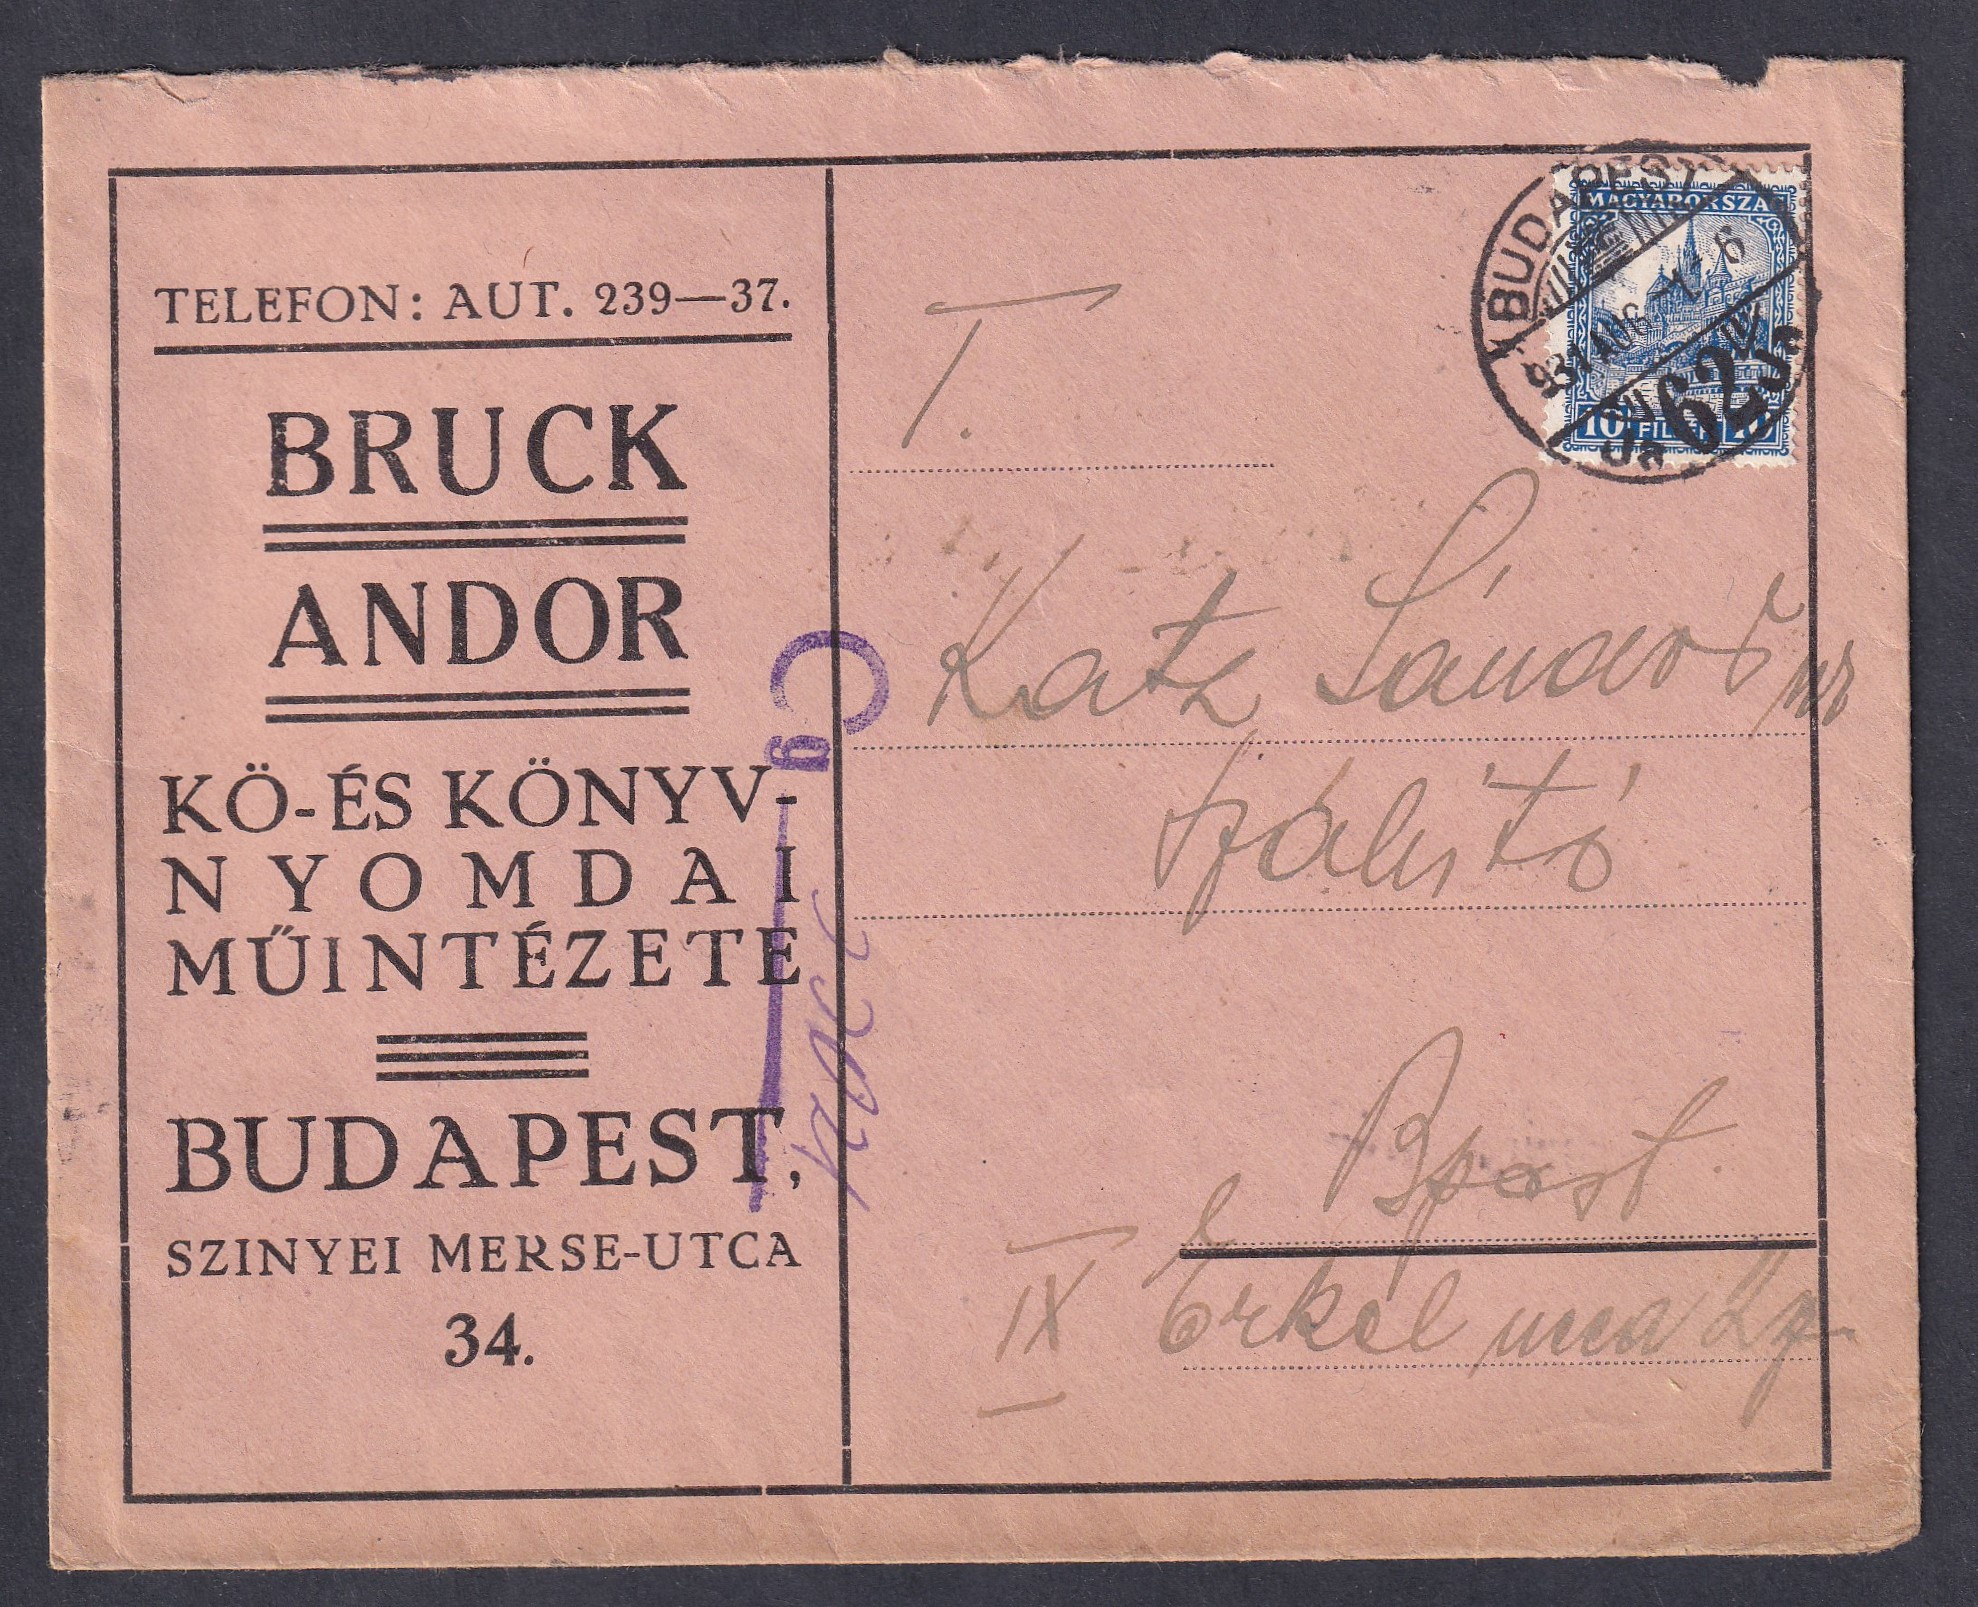 TELEFON: AUT. 239—37.
BRUCK
ANDOR
KÖ-ÉS KÖNYV-
NYOMDAI
MŰINTÉZETE
BUDAPEST,
SZINYEI MERSE-UTCA
34.
BUDAPEST
931 AUG
62
MAGYARORSZÁG
10 FILLÉR 10
T.
Katz Sándor
Bpest
IX Erkel ucca